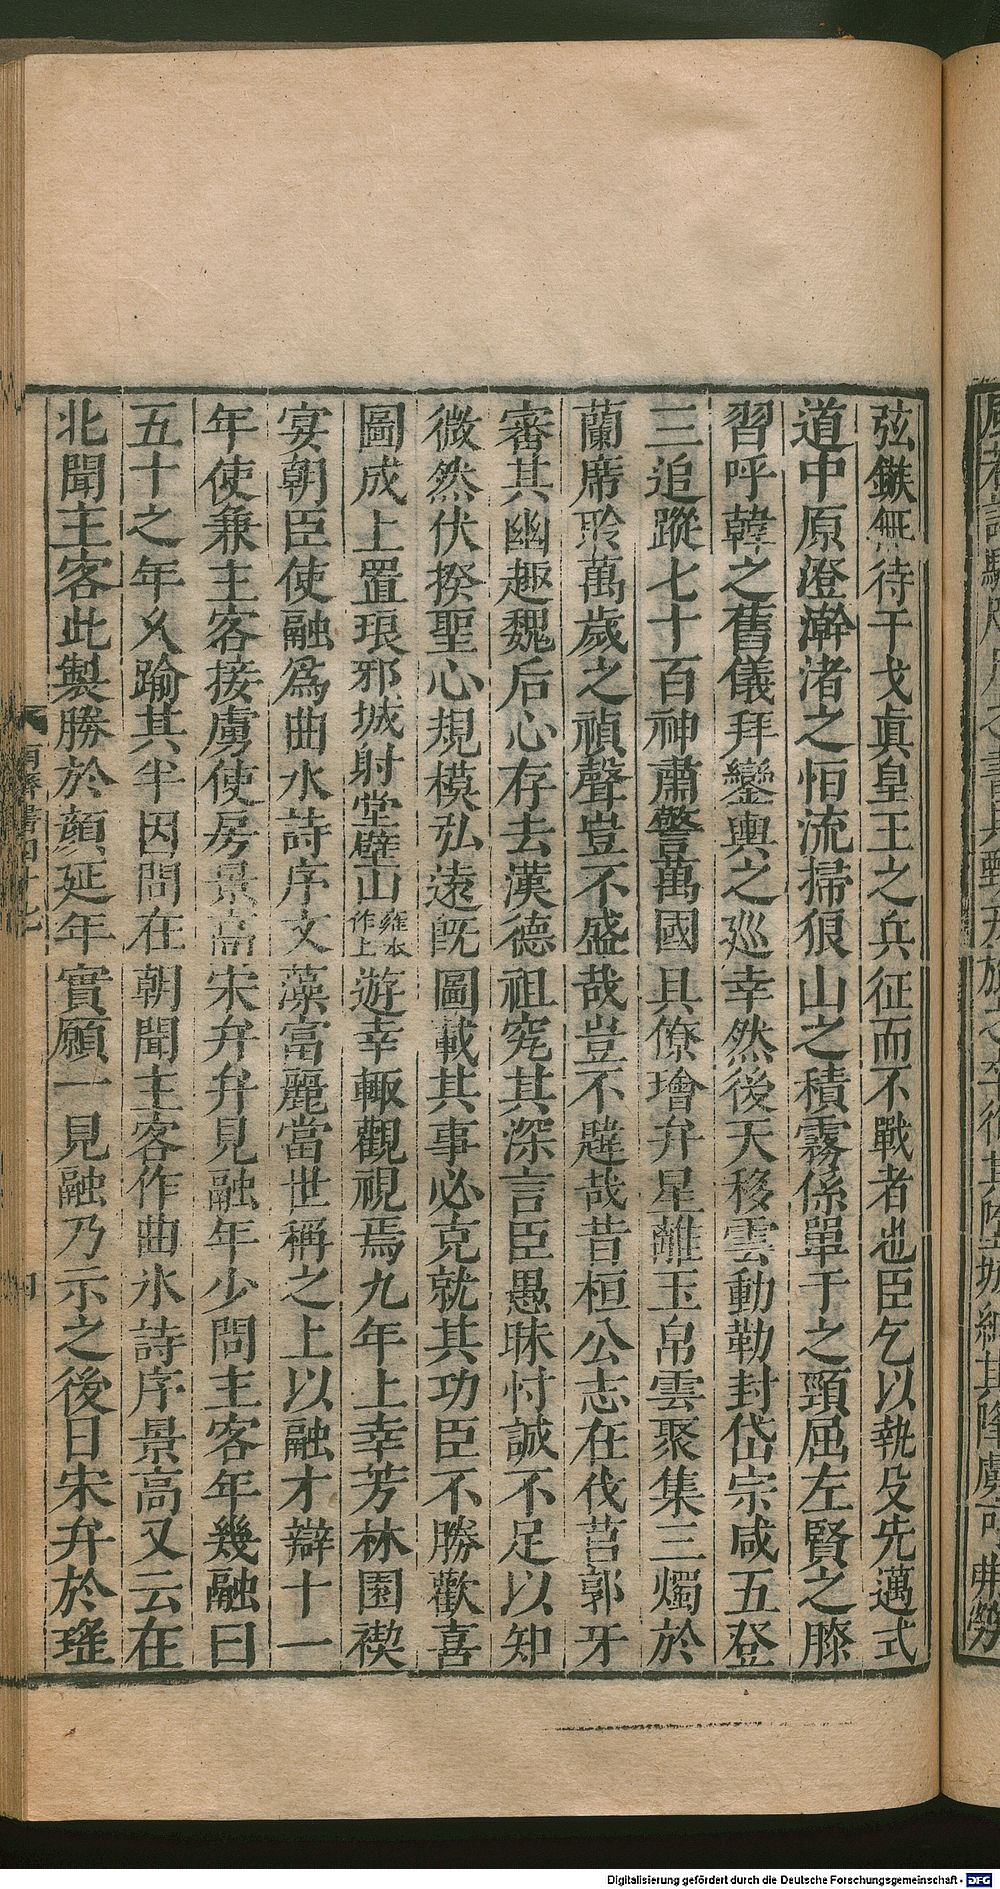 弦鏃無待干戈真皇王之兵征而不戰者也臣乞以執殳先邁式
道中原澄澣渚之恒流掃狼山之積霧係單于之頸屈左賢之膝
習呼韓之舊儀拜鑾輿之巡幸然後天移雲動勒封岱宗咸五登
三追蹤七十百神肅警萬國具僚璯弁星離玉帛雲聚集三燭於
蘭席聆萬歲之禎聲豈不盛哉豈不韙哉昔桓公志在伐莒郭牙
審其幽趣魏后心存去漢德祖究其深言臣愚昧忖誠不足以知
微然伏揆聖心規模弘遠旣圖載其事必克就其功臣不勝歡喜
圖成上置琅邪城射堂壁山雍本作上遊幸輒觀視焉九年上幸芳林園禊
宴朝臣使融爲曲水詩序文藻富麗當世稱之上以融才辯十一
年使兼主客接虜使房景高宋弁弁見融年少問主客年幾融曰
五十之年乆踰其半因問在朝聞主客作曲水詩序景高又云在
北聞主客此製勝於顔延年實願一見融乃示之後日宋弁於瑤
南齊書四十七
四
Digitalisierung gefördert durch die Deutsche Forschungsgemeinschaft - DFG